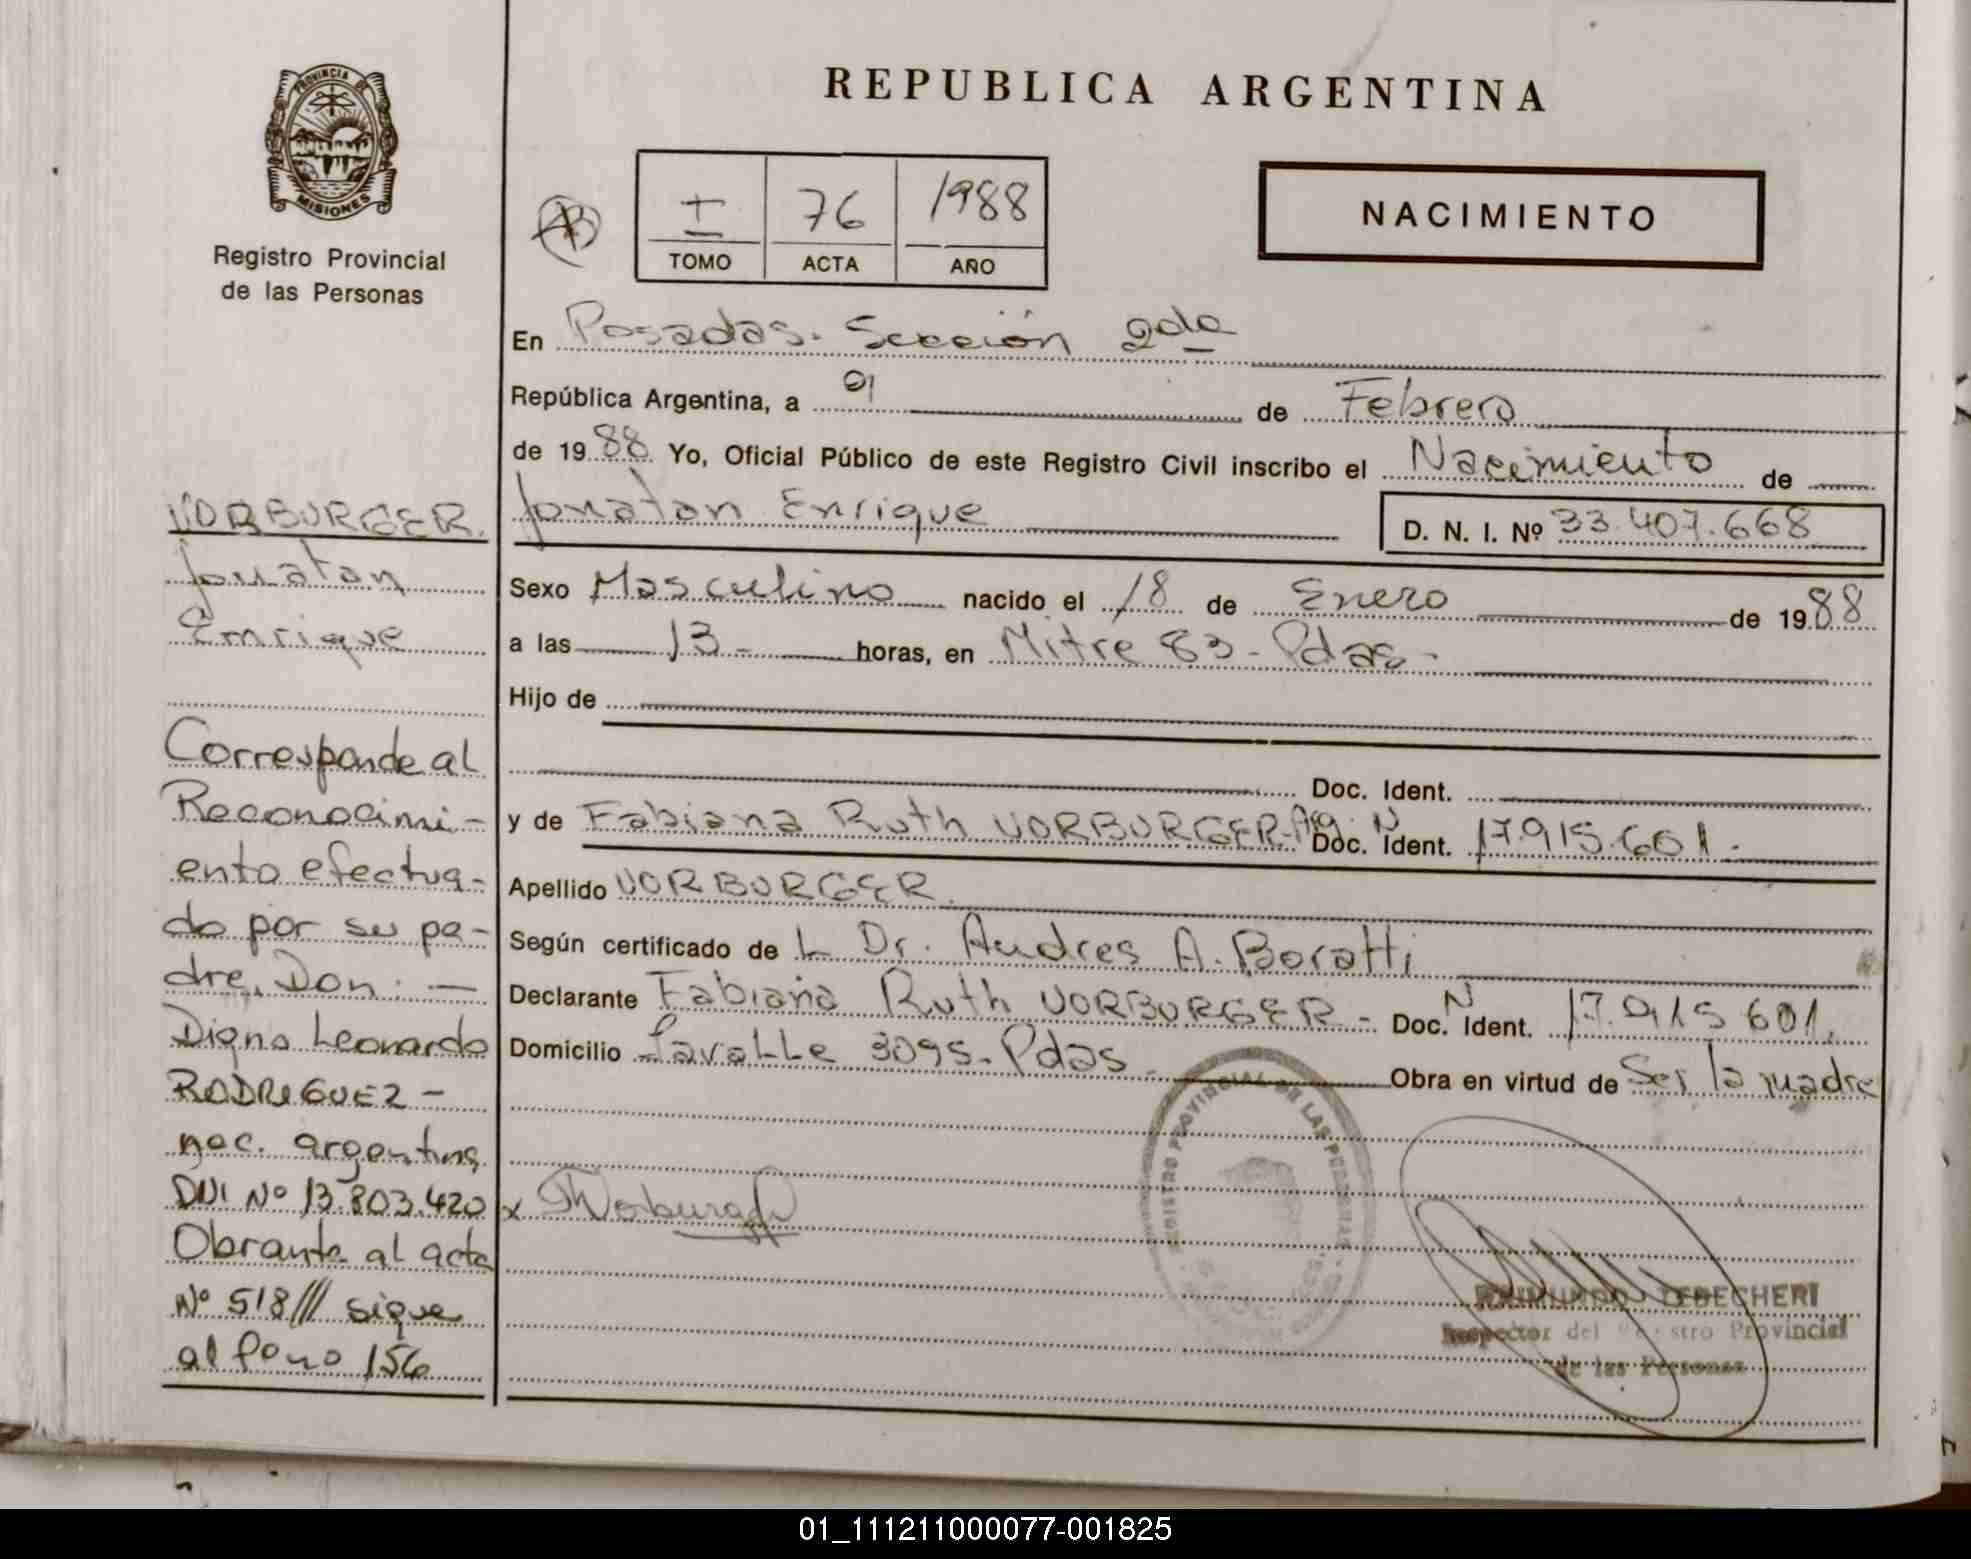 REPUBLICA ARGENTINA
PROVINCIA DE
MISIONES
Registro Provincial
de las Personas
I 76 1988
TOMO ACTA AÑO
NACIMIENTO
En Posadas. Sección 2da
República Argentina, a 01 de Febrero
de 1988 Yo, Oficial Público de este Registro Civil inscribo el Nacimiento de
Jonatan Enrique D. N. I. Nº 33.407.668
Sexo Masculino nacido el 18 de Enero de 1988
a las 13 - horas, en Mitre 83 - Pdas -
Hijo de
Doc. Ident.
y de Fabiana Ruth VORBURGER - Arg. N Doc. Ident. 17.915.601.-
Apellido VORBURGER.
Según certificado de L Dr. Andres A. Boratti
Declarante Fabiana Ruth VORBURGER - N Doc. Ident. 17.915 601.
Domicilio Lavalle 3095 - Pdas Obra en virtud de Ser la madre
VORBURGER.
Jonatan
Enrique
Corresponde al
Reconocimi-
ento efectua-
do por su pa-
dre, Don. —
Digno Leonardo
RODRIGUEZ -
nac. argentina
DNI Nº 13.803.420
Obrante al acta
Nº 518/// sigue
al fono 156
REGISTRO PROVINCIAL DE LAS PERSONAS
RAIMUNDO
Inspector del Provincial
de las Personas
01_111211000077-001825